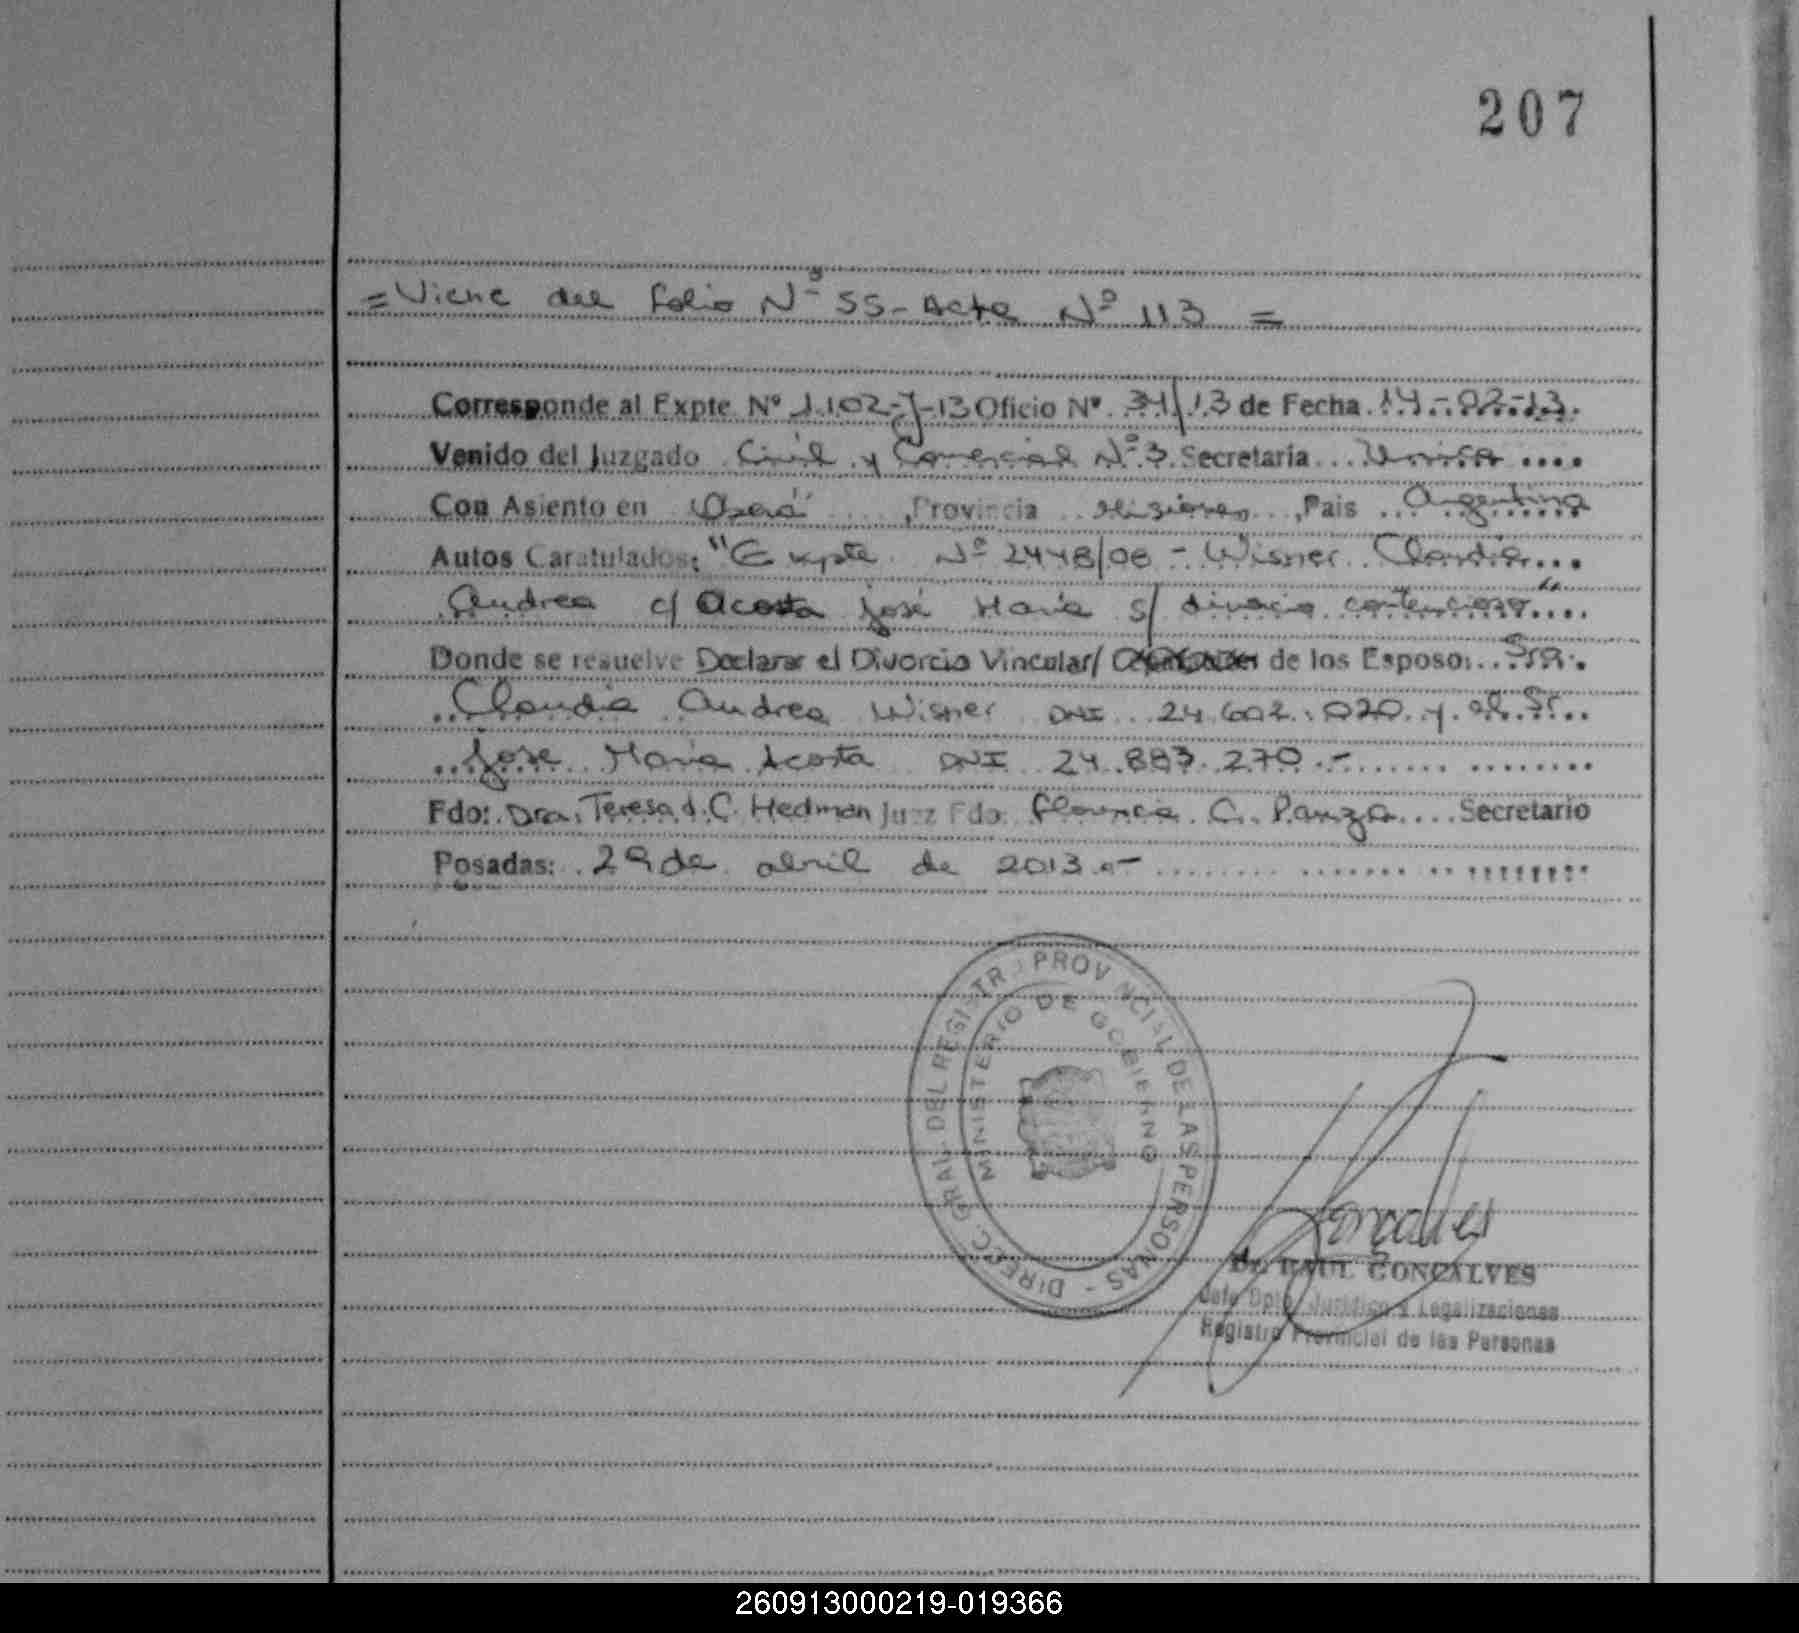 207
= Viene del folio Nº 55 - Acta Nº 113 =
Corresponde al Expte Nº 1102-J-13 Oficio Nº 34/13 de Fecha 14-02-13.
Venido del Juzgado Civil y Comercial Nº 3 Secretaria Unica
Con Asiento en Oberá, Provincia Misiones, Pais Argentina
Autos Caratulados: "Expte Nº 2448/08 - Wisner Claudia
Andrea c/ Acosta José Maria s/ divorcio contencioso"
Donde se resuelve Declarar el Divorcio Vincular/ de los Esposo: Sra.
Claudia Andrea Wisner DNI 24.602.020 y el Sr.
Jose Maria Acosta DNI 24.883.270.-
Fdo: Dra. Teresa d. C. Hedman Juez Fdo: Florencia C. Panza Secretario
Posadas: 29 de abril de 2013.-
DIRECC. GRAL. DEL REGISTRO PROVINCIAL DE LAS PERSONAS -
MINISTERIO DE GOBIERNO
Goncalves
Dr. RAUL GONCALVES
Jefe Dpto. Juridico y Legalizaciones
Registro Provincial de las Personas
260913000219-019366